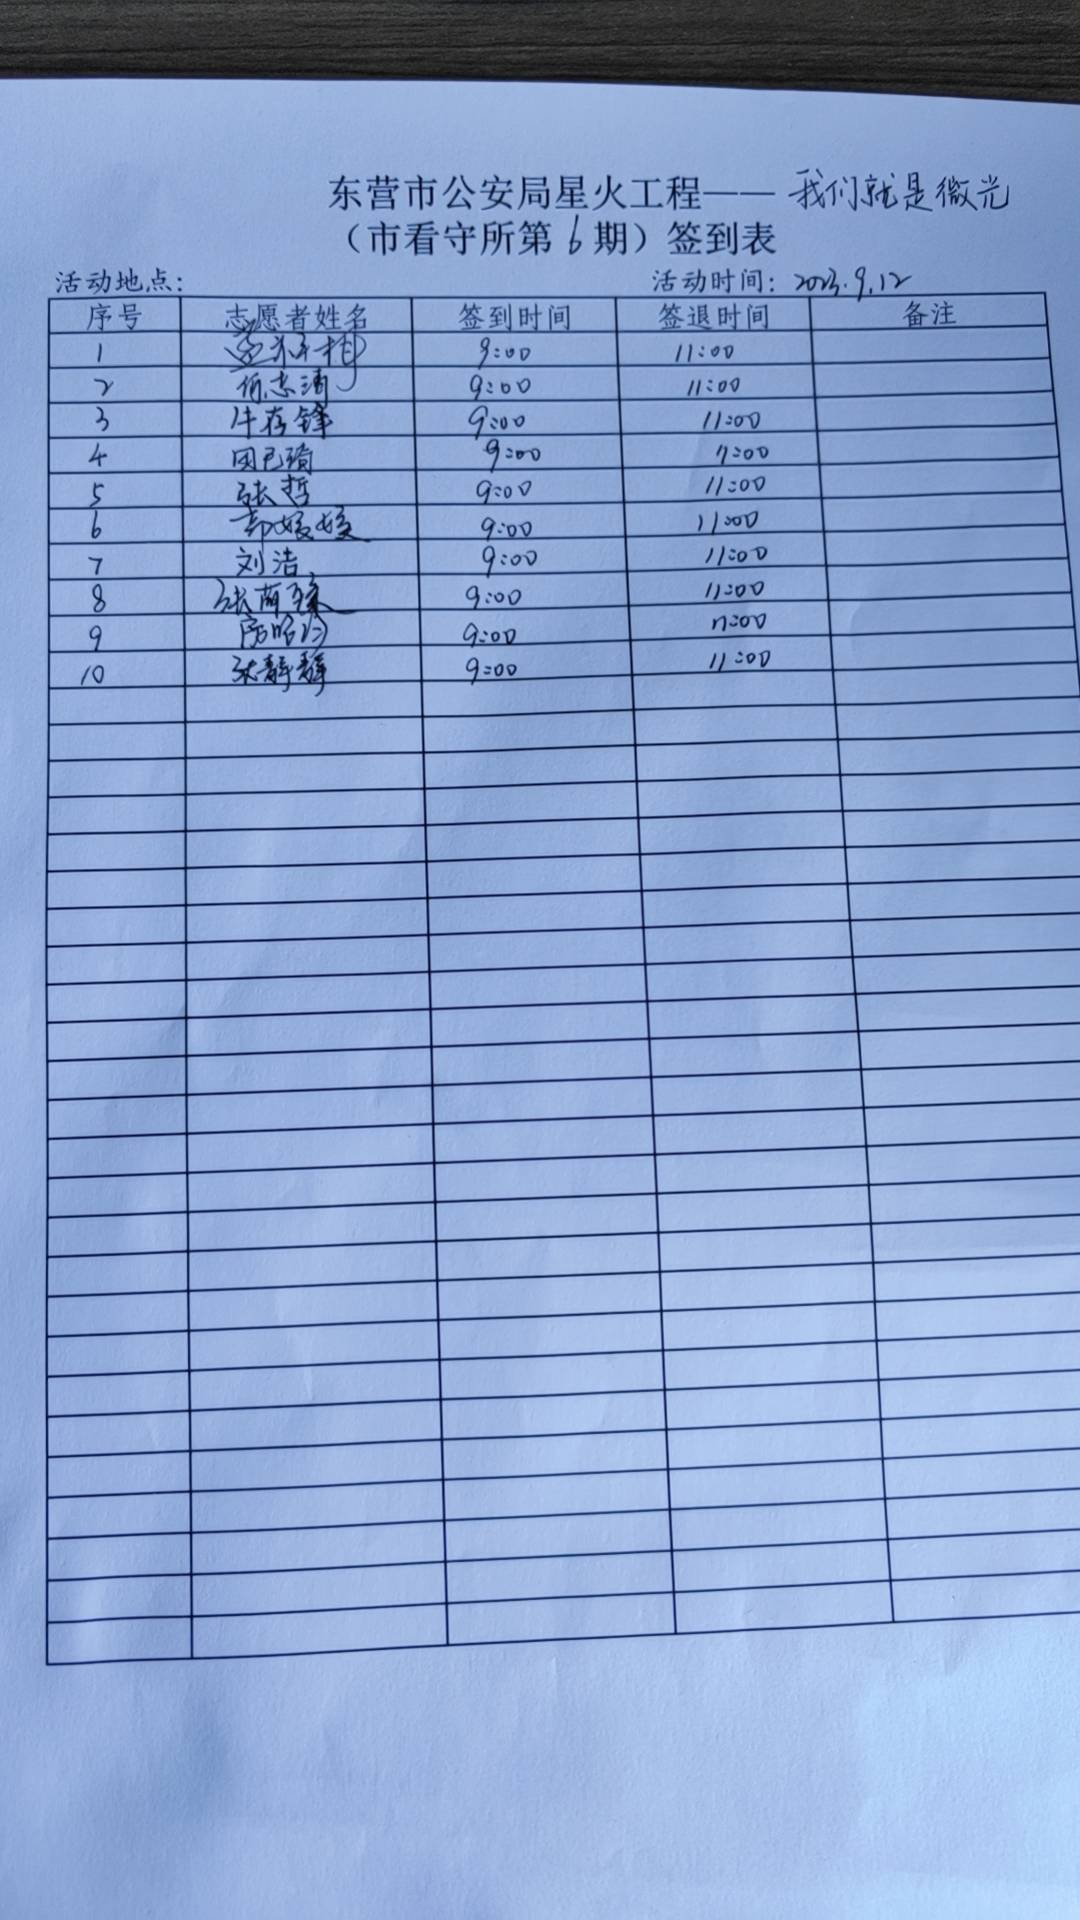 东营市公安局星火工程——我们就是微光
（市看守所第6期）签到表
活动地点： 活动时间：2023.9.12
序号 志愿者姓名 签到时间 签退时间 备注
1 9:00 11:00
2 志清 9:00 11:00
3 牛存锋 9:00 11:00
4 9:00 11:00
5 张哲 9:00 11:00
6 媛媛 9:00 11:00
7 刘洁 9:00 11:00
8 张 9:00 11:00
9 9:00 11:00
10 张静静 9:00 11:00